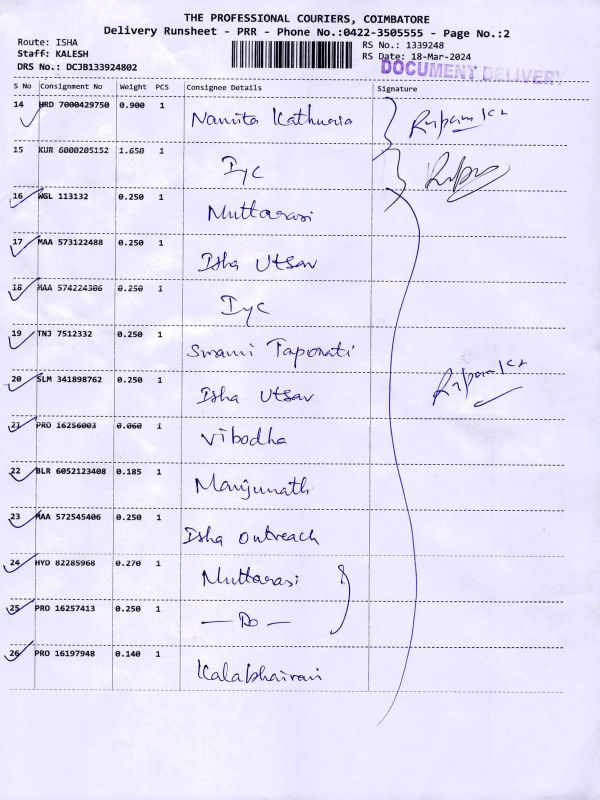 THE PROFESSIONAL COURIERS, COIMBATORE
Delivery Runsheet - PRR - Phone No.:0422-3505555 - Page No.:2
Route: ISHA
Staff: KALESH
DRS No.: DCJB133924802
RS No.: 1339248
RS Date: 18-Mar-2024
DOCUMENT DELIVERY
S No Consignment No Weight PCS Consignee Details Signature
14 HRD 7000429750 0.900 1 Namita Kathuria
15 KUR 6000205152 1.650 1 Iyc
16 WGL 113132 0.250 1 Muttarasi
17 MAA 573122488 0.250 1 Isha Utsav
18 MAA 574224306 0.250 1 Iyc
19 TNJ 7512332 0.250 1 Swami Taporati
20 SLM 341898762 0.250 1 Isha Utsav
21 PRO 16256003 0.060 1 Vibodha
22 BLR 6052123408 0.185 1 Manjunath
23 MAA 572545406 0.250 1 Isha Outreach
24 HYD 82285968 0.270 1 Muttarasi
25 PRO 16257413 0.250 1 — Do —
26 PRO 16197948 0.140 1 Kalabhairavi